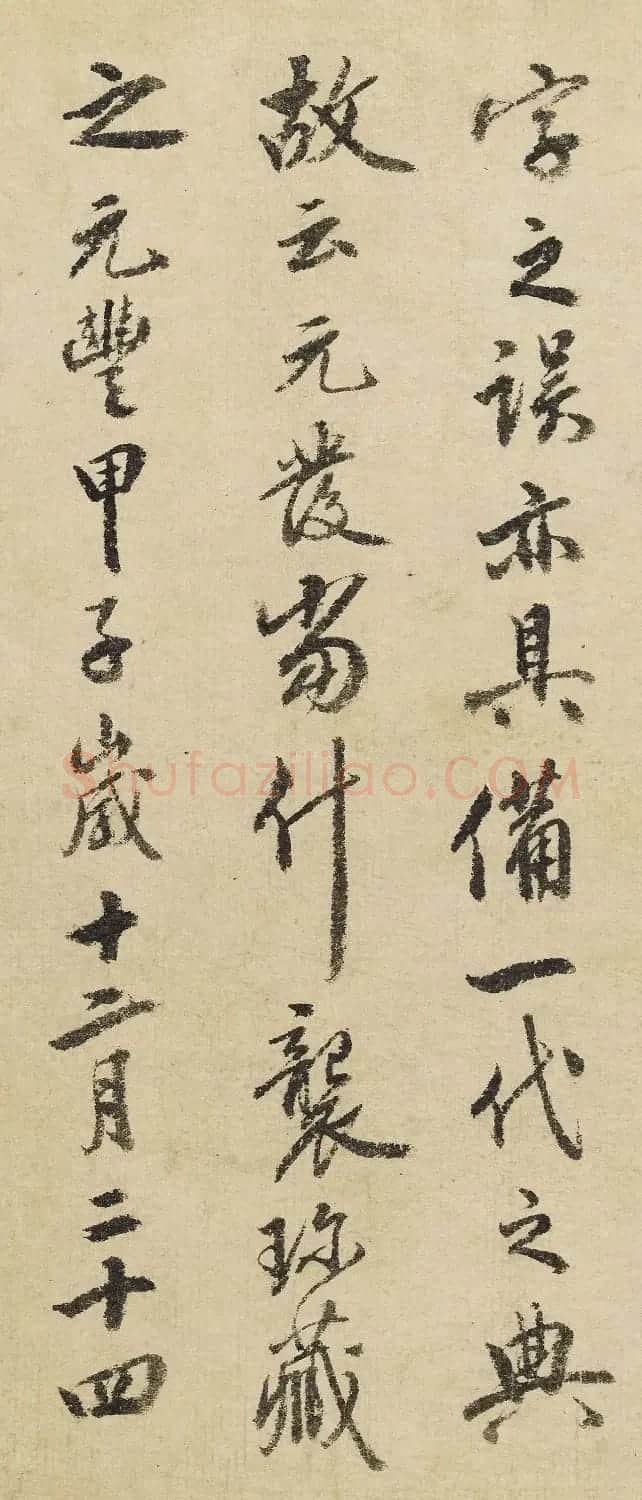 字之误亦具備一代之典
故云元發當什襲珎藏
之元豐甲子歲十二月二十四
Shufaziliao.COM